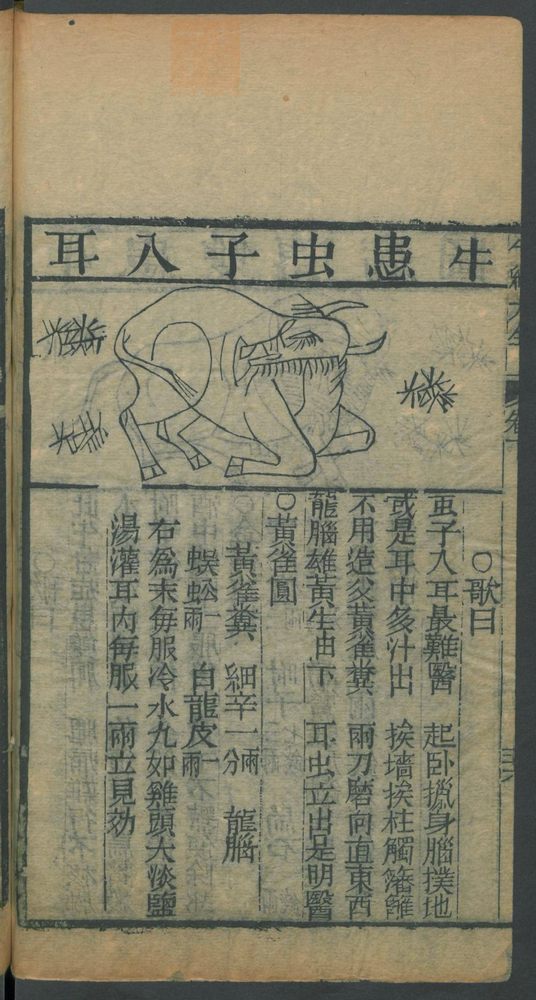 牛患虫子入耳
○歌曰
虫子入耳最難醫　起卧攧身腦撲地
或是耳中多汁出　挨墻挨柱觸籓籬
不用造父黃雀糞　兩刀磨向直東西
龍腦雄黃生由下　耳虫立出是明醫
○黃雀圓
黃雀糞　細辛一兩一分　龍腦
蜈蚣一兩　白龍皮一兩
右為末每服冷水九如雞頭大淡鹽
湯灌耳內每服一兩立見効